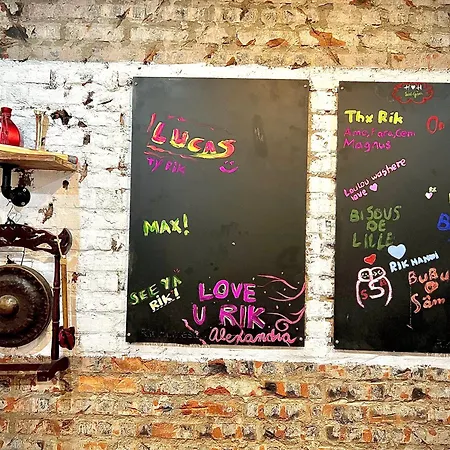 LUCAS
TY RIK
MAX!
SEE YA
RIK!
LOVE
U RIK
Alexandra
Thx Rik
Magnus
Loulou was here
love
BISOUS
DE
LILLE
RIK HANDI
BUBU
Sâm